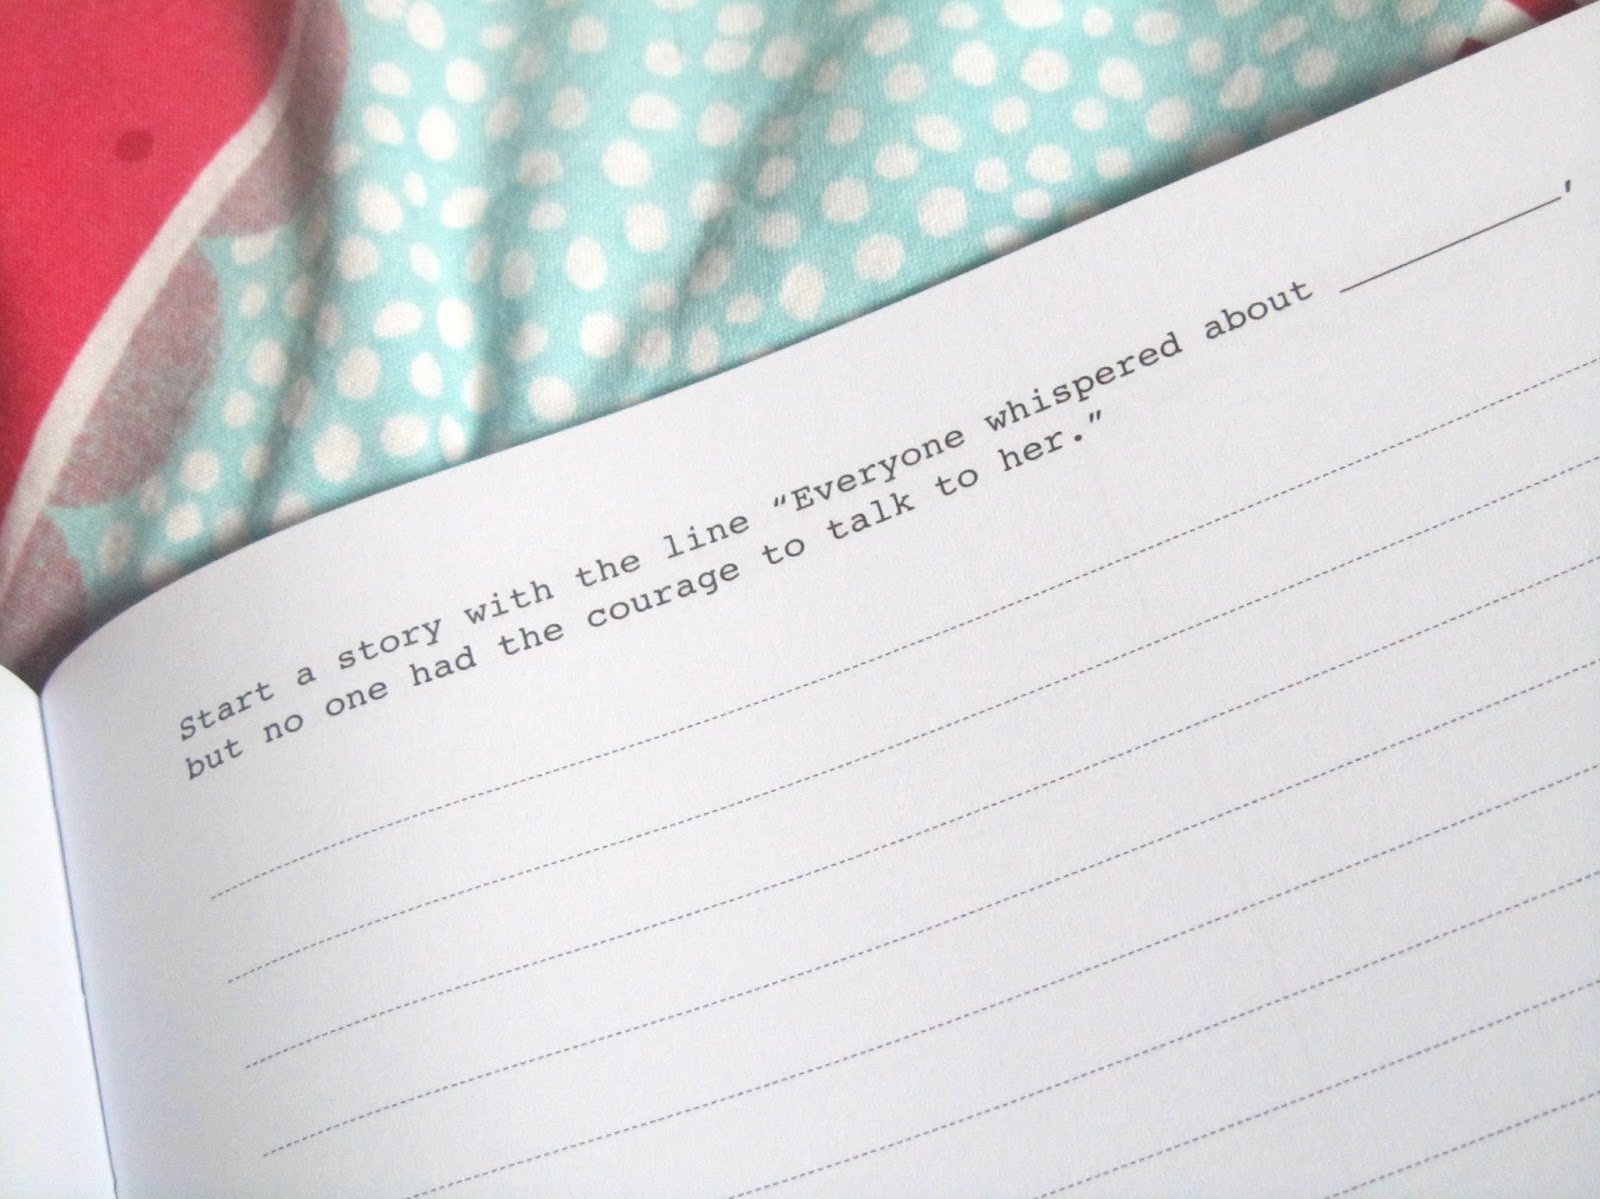 Start a story with the line “Everyone whispered about __________,
but no one had the courage to talk to her.”